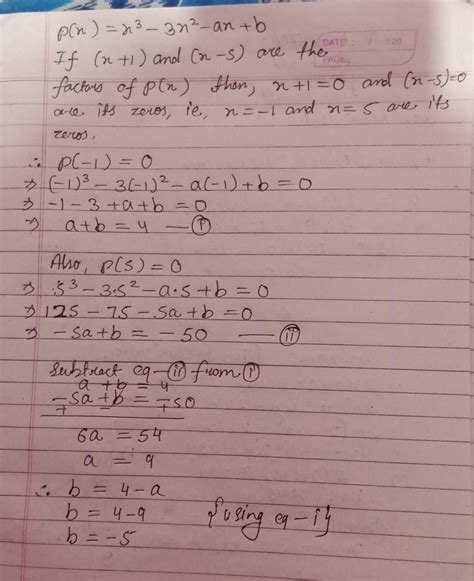 p(x) = x³ - 3x² - ax + b
If (x+1) and (x-5) are the
DATE: / /20
PAGE:
factors of p(x) then, x+1=0 and (x-5)=0
are its zeros, ie, x=-1 and x=5 are its
zeros.
∴ p(-1) = 0
⇒ (-1)³ - 3(-1)² - a(-1) + b = 0
⇒ -1 - 3 + a + b = 0
⇒ a+b = 4 — (i)
Also, p(5) = 0
⇒ 5³ - 3·5² - a·5 + b = 0
⇒ 125 - 75 - 5a + b = 0
⇒ -5a + b = -50 — (ii)
Subtract eq-(ii) from (i)
a + b = 4
-5a + b = -50
+ - +
6a = 54
a = 9
∴ b = 4 - a
b = 4 - 9 {using eq-i}
b = -5